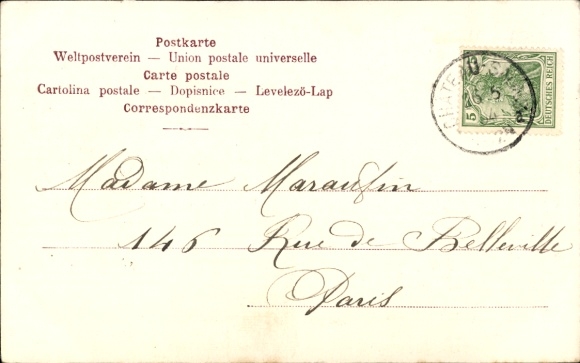 Postkarte
Weltpostverein — Union postale universelle
Carte postale
Cartolina postale — Dopisnice — Levelező-Lap
Correspondenzkarte
5
DEUTSCHES REICH
Madame
146 Rue de Belleville
Paris